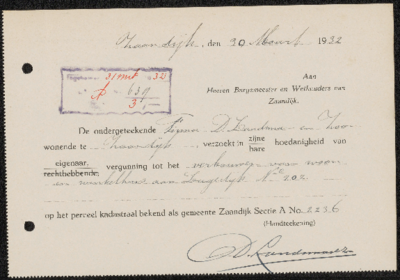 Zaandijk, den 30 Maart 1932
Aan
Heeren Burgemeester en Wethouders van
Zaandijk.
31 Mrt 32
639
3
De ondergeteekende Firma D. en Zoon
wonende te Zaandijk verzoekt in zijne hoedanigheid van
hare
eigenaar, vergunning tot het verbouwen van woon
rechthebbende,
en winkelhuis aan Lagedijk No 202
op het perceel kadastraal bekend als gemeente Zaandijk Sectie A No. 2236
(Handteekening)